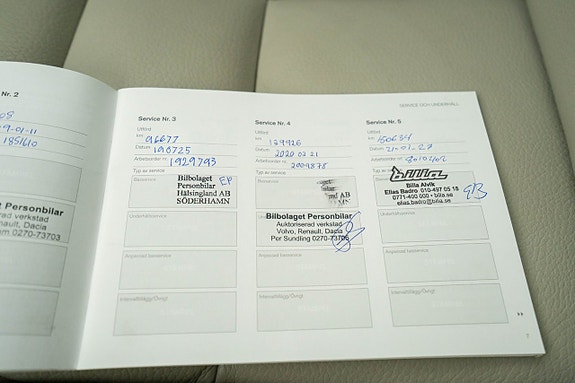 Nr. 2
9-01-11
1851610
Personbilar
erad verkstad
enault, Dacia
0270-73703
SERVICE OCH UNDERHÅLL
Service Nr. 3
Utförd
km 96677
Datum 190725
Arbetsorder nr. 1929793
Typ av service
Basservice
Bilbolaget
Personbilar
Hälsingland AB
SÖDERHAMN
EP
Underhållsservice
Anpassad basservice
Internettillägg/Övrigt
Service Nr. 4
Utförd
km 129926
Datum 2020 02 21
Arbetsorder nr. 2009878
Typ av service
Basservice
nd AB
Bilbolaget Personbilar
Auktoriserad verkstad
Volvo, Renault, Dacia
Per Sundling 0270-73703
Anpassad basservice
Internettillägg/Övrigt
Service Nr. 5
Utförd
km
Datum
Arbetsorder nr.
Typ av service
billa
Billa Alvik
Elias Badro 010-497 05 18
0771-400 000 • billa.se
elias.badro@billa.se
EB
Underhållsservice
Anpassad basservice
Internettillägg/Övrigt
7